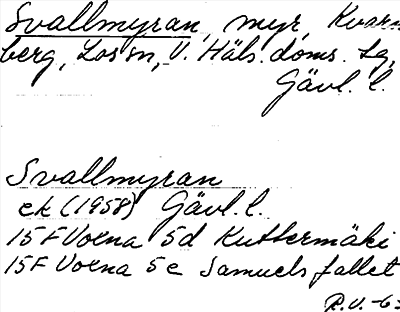 Svallmyran, myr, Kvarn
berg, Los sn, V. Häls. doms. sg,
Gävl. l.
Svallmyran
ek (1958) Gävl. l.
15 F Voxna 5d Kuttermäki
15F Voxna 5e Samuelsfallet
R.V. -6